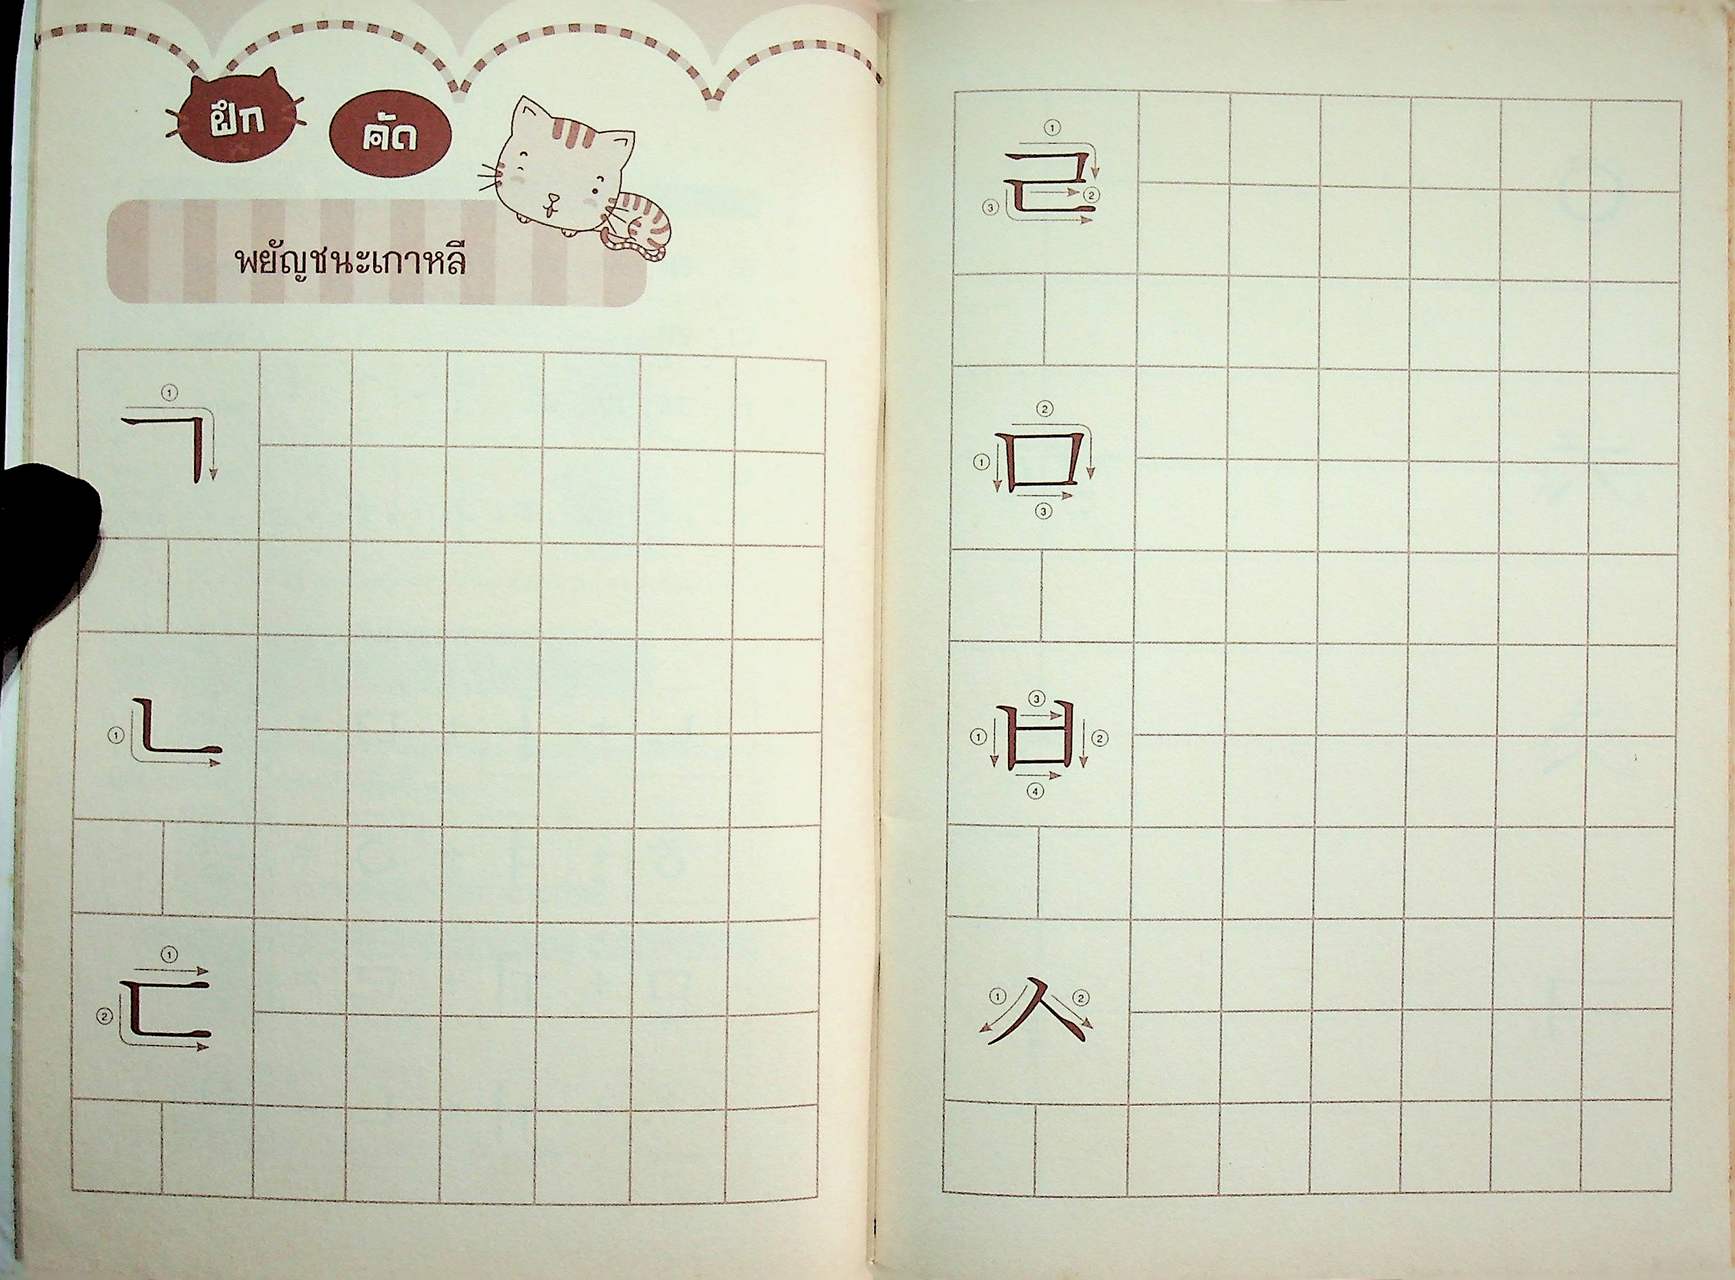 ฝึก คัด
พยัญชนะเกาหลี
①
ㄱ
①
ㄴ
①
②
ㄷ
①
②
③
ㄹ
②
①
③
ㅁ
③
①
②
④
ㅂ
①
②
ㅅ